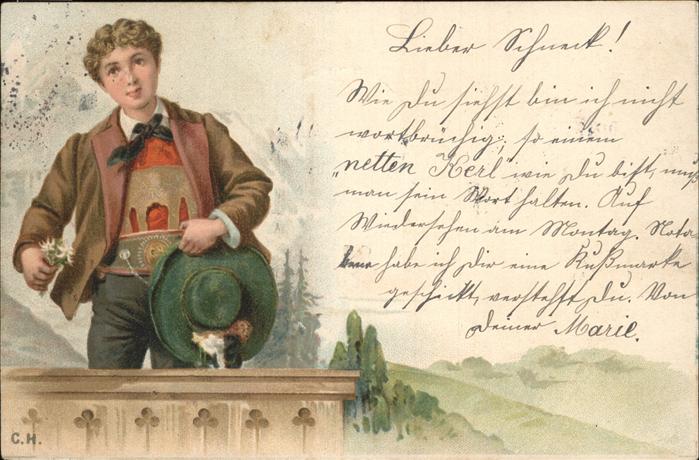 Lieber Schneck!
Wie Du siehst bin ich nicht
wortbrüchig; so einem
"netten Kerl wie Du bist, muß
man sein Wort halten. Auf
Wiedersehen am Montag. Nota
bene habe ich Dir eine Kußmarke
geschickt, verstehst Du. Von
Deiner Marie.
C.H.